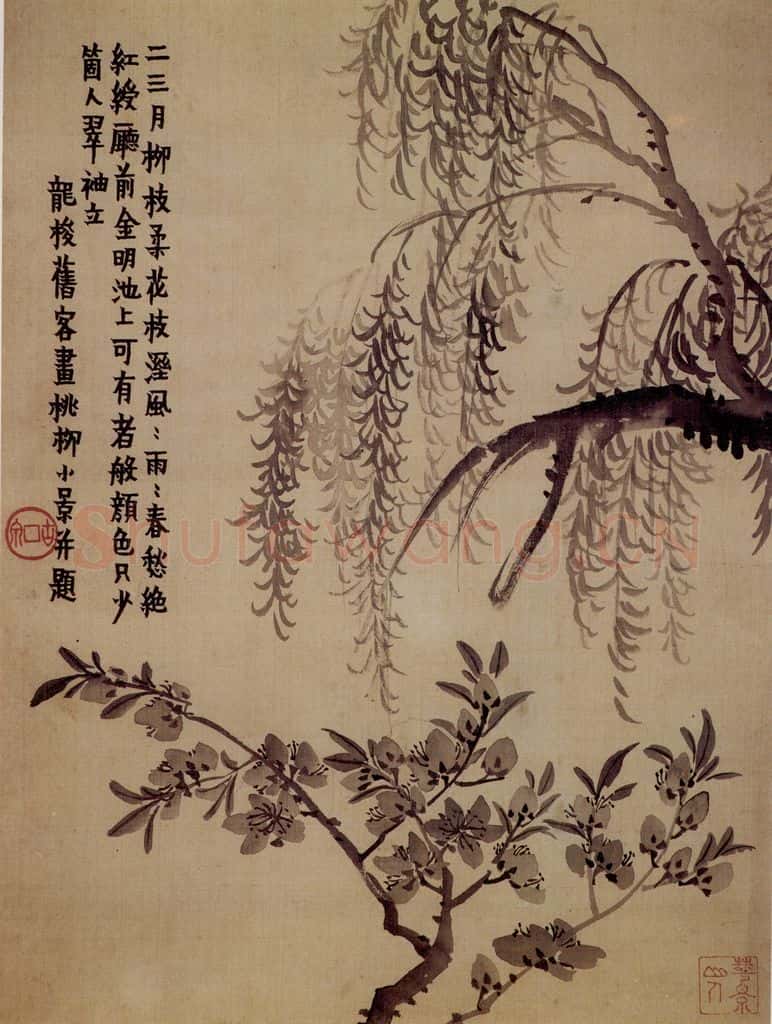 二三月柳枝柔花枝溼風〻雨〻春愁絶
紅綬廳前金明池上可有者般顏色只少
箇人翠袖立
龍梭舊客畫桃柳小景并題
Shufawang.CN